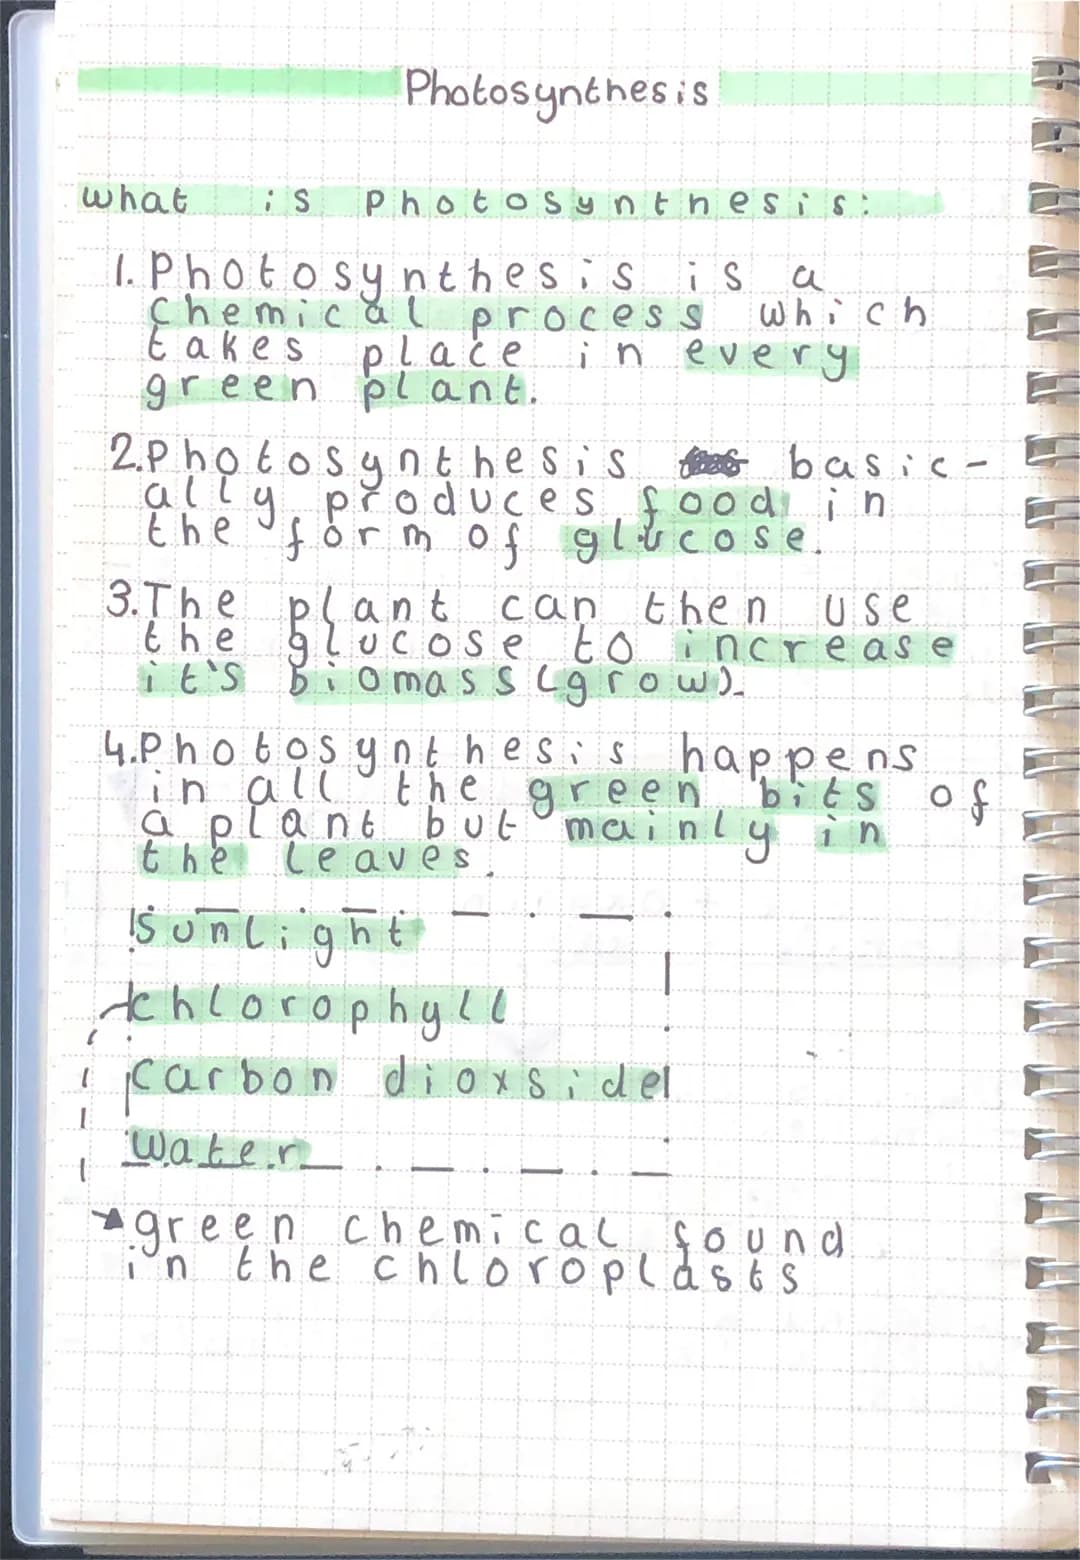 Photosynthesis
what is photosynthesis:
1. Photosynthesis is a
chemical process which
takes place in every
green plant.
2. Photosynthesis basic-
ally produces food in
the form of glucose.
3. The plant can then use
the glucose to increase
it's biomass (grow).
4. Photosynthesis happens
in all the green bits of
a plant but mainly in
the leaves.
sunlight
chlorophyll
carbon dioxside
water
green chemical found
in the chloroplasts